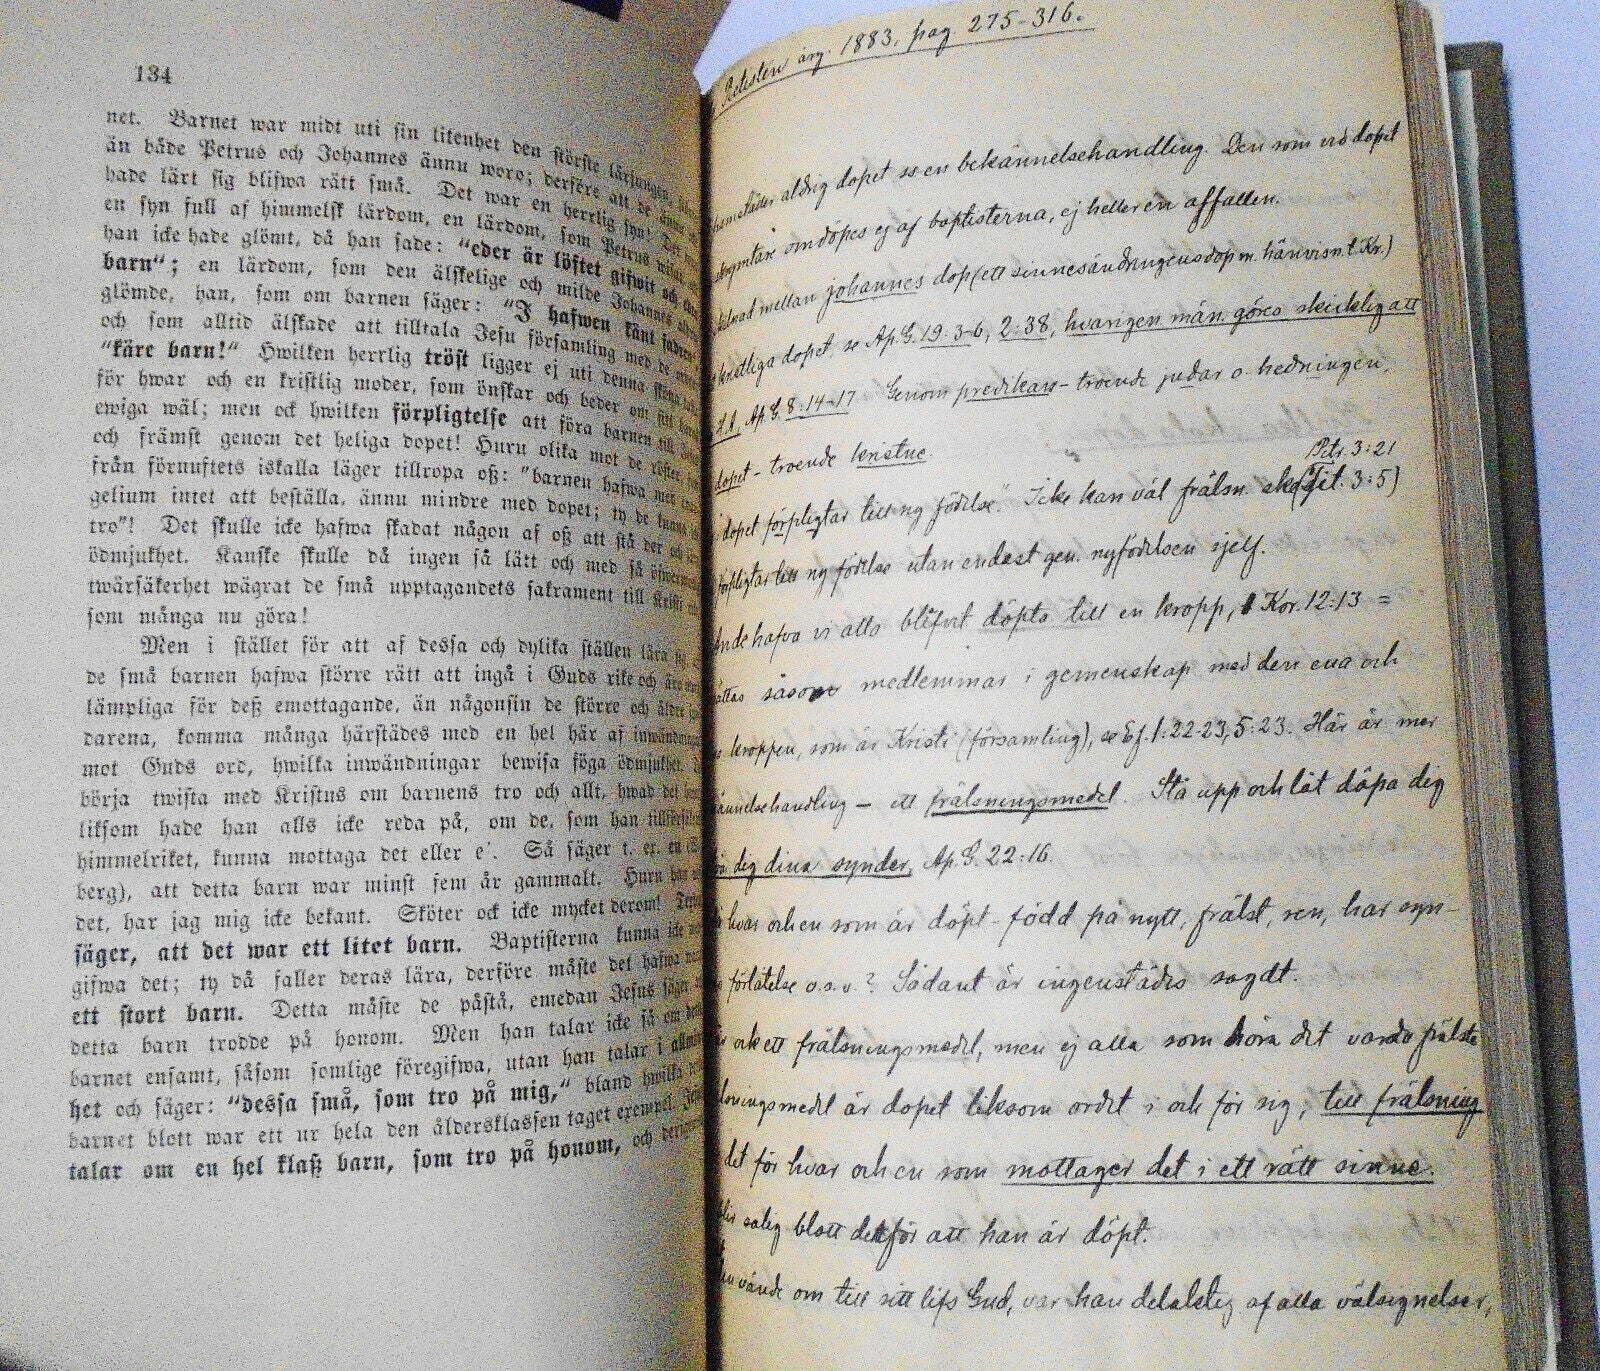 134
net. Barnet war midt uti sin litenhet den störste lärjungen,
än både Petrus och Johannes ännu woro; derföre att de ännu
hade lärt sig blifwa rätt små. Det war en herrlig syn! Det
en syn full af himmelsk lärdom, en lärdom, som Petrus
han icke hade glömt, då han sade: "eder är löftet gifwit och
barn"; en lärdom, som den älskelige och milde Johannes
glömde, han, som om barnen säger: "I hafwen känt fadren"
och som alltid älskade att tilltala Jesu församling med de
"käre barn!" Hwilken herrlig tröst ligger ej uti denna
för hwar och en kristlig moder, som önskar och beder om sitt
ewiga wäl; men ock hwilken förpligtelse att föra barnen till
och främst genom det heliga dopet! Huru olika mot de röster,
från förnuftets iskalla läger tillropa oss: "barnen hafwa med
gelium intet att beställa, ännu mindre med dopet; ty de kunna
tro"! Det skulle icke hafwa skadat någon af oss att stå der och
ödmjukhet. Kanske skulle då ingen så lätt och med så
twärsäkerhet wägrat de små upptagandets sakrament till
som många nu göra!
Men i stället för att af dessa och dylika ställen lära
de små barnen hafwa större rätt att ingå i Guds rike och
lämpliga för dess emottagande, än någonsin de större och äldre
darena, komma många härstädes med en hel här af inwändningar
mot Guds ord, hwilka inwändningar bewisa föga ödmjukhet.
börja twista med Kristus om barnens tro och allt, hwad det
liksom hade han alls icke reda på, om de, som han tillförsäkrar
himmelriket, kunna mottaga det eller e'. Så säger t. ex. en
berg), att detta barn war minst fem år gammalt. Huru han
det, har jag mig icke bekant. Sköter ock icke mycket derom!
säger, att det war ett litet barn. Baptisterna kunna icke
gifwa det; ty då faller deras lära, derföre måste det hafwa
ett stort barn. Detta måste de påstå, emedan Jesus säger,
detta barn trodde på honom. Men han talar icke så om
barnet ensamt, såsom somlige föregifwa, utan han talar i
het och säger: "dessa små, som tro på mig," bland hwilka
barnet blott war ett ur hela den åldersklassen taget exempel.
talar om en hel klass barn, som tro på honom, och
Pietisten årg. 1883, pag. 275-316.
aldrig dopet ss en bekännelsehandling. Den som vid dopet
omdöpes ej af baptisterna, ej heller en affallen.
mellan johannes dop (ett sinnesändringens dop m. hänvisn. t. Kr.)
kristliga dopet, se Ap.G. 19:3-6, 2:38, hvarigen män. göres skicklig att
H.A. Ap.G. 8:14-17 Genom predikan - troende judar o hedningen,
dopet - troende kristne.
1 Petr. 3:21
dopet förpligtar till ny födelse." Icke kan väl frälsn. ske (Tit. 3:5)
förpligtar till ny födelse utan endast gen. nyfödelsen sjelf.
Ande hafva vi alla blifvit döpta till en kropp, 1 Kor. 12:13 =
såsom medlemmar i gemenskap med den ena och
kroppen, som är Kristi (församling), se Ef. 1:22-23, 5:23. Här är mer
bekännelsehandling - ett frälsningsmedel. Stå upp och låt döpa dig
dig dina synder, Ap.G. 22:16.
hvar och en som är döpt - född på nytt, frälst, ren, har syn-
förlåtelse o.s.v.? Sådant är ingenstädes sagdt.
ock ett frälsningsmedel, men ej alla som höra det varda frälsta
frälsningsmedel är dopet liksom ordet i och för sig, till frälsning
det för hvar och en som mottager det i ett rätt sinne.
blir salig blott derför att han är döpt.
vände om till sitt lifs Gud, var han delaktig af alla välsignelser,